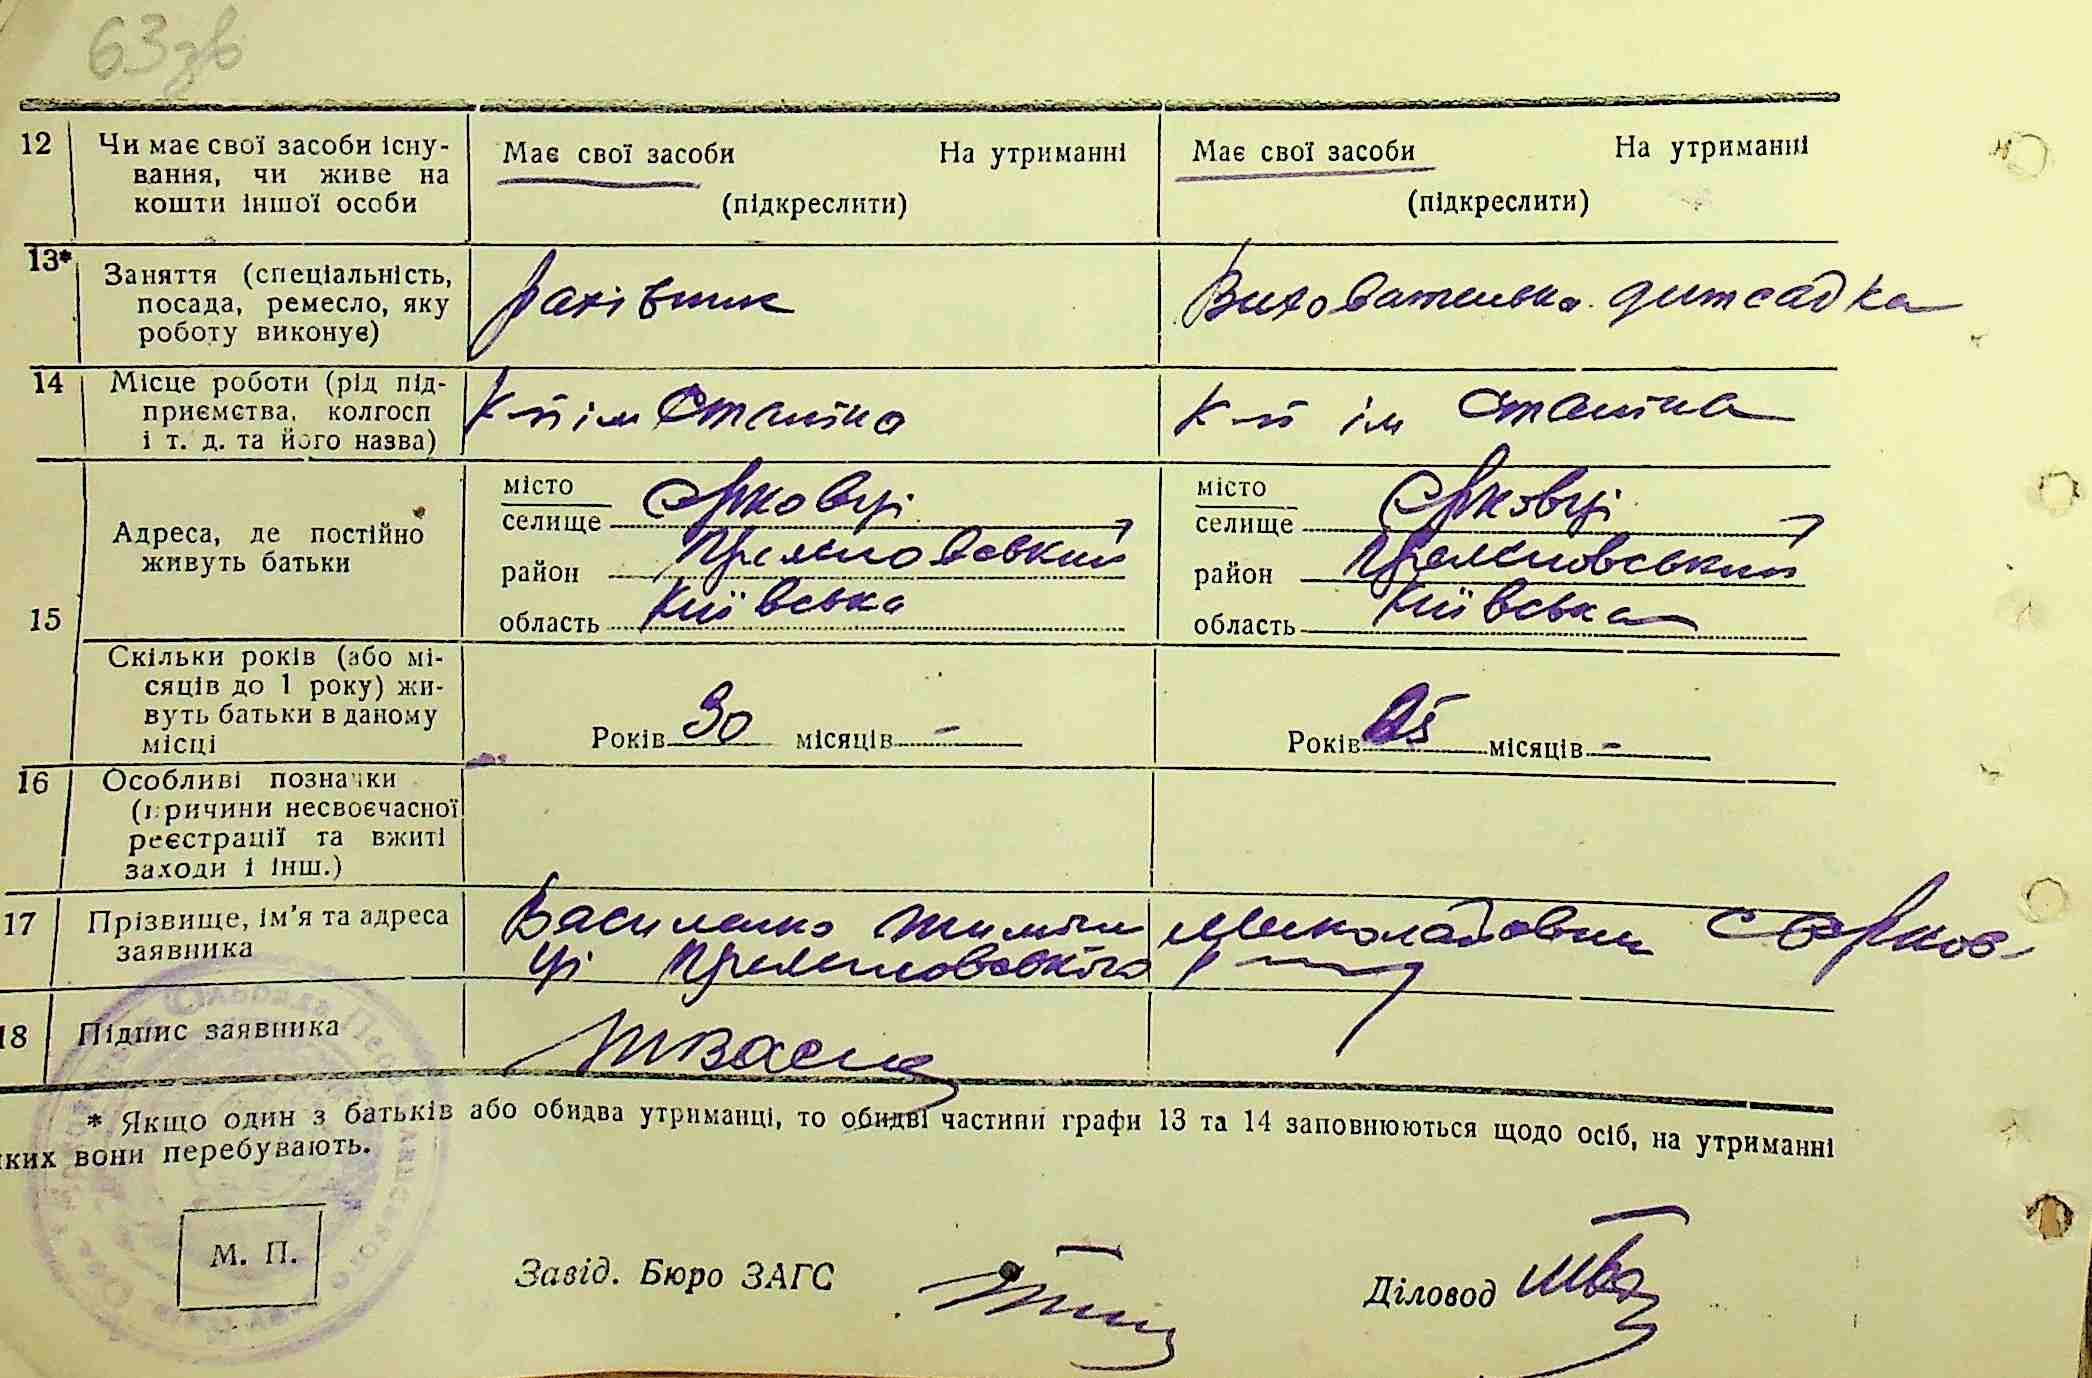 63 зв
12 Чи має свої засоби існу-
вання, чи живе на
кошти іншої особи
Має свої засоби На утриманні
(підкреслити)
Має свої засоби На утриманні
(підкреслити)
13* Заняття (спеціальність,
посада, ремесло, яку
роботу виконує)
Рахівник
Вихователька дитсадка
14 Місце роботи (рід під-
приємства, колгосп
і т. д. та його назва)
К-п ім Сталіна
К-п ім Сталіна
15 Адреса, де постійно
живуть батьки
місто
селище Єрковці
район
область Київська
місто
селище Єрковці
район
область Київська
Скільки років (або мі-
сяців до 1 року) жи-
вуть батьки в даному
місці
Років 30 місяців -
Років 25 місяців -
16 Особливі позначки
(причини несвоєчасної
реєстрації та вжиті
заходи і інш.)
17 Прізвище, ім'я та адреса
заявника
Василенко Миколайович с Єрков-
ці
18 Підпис заявника
* Якщо один з батьків або обидва утриманці, то обидві частини графи 13 та 14 заповнюються щодо осіб, на утриманні
яких вони перебувають.
М. П.
Завід. Бюро ЗАГС
Діловод